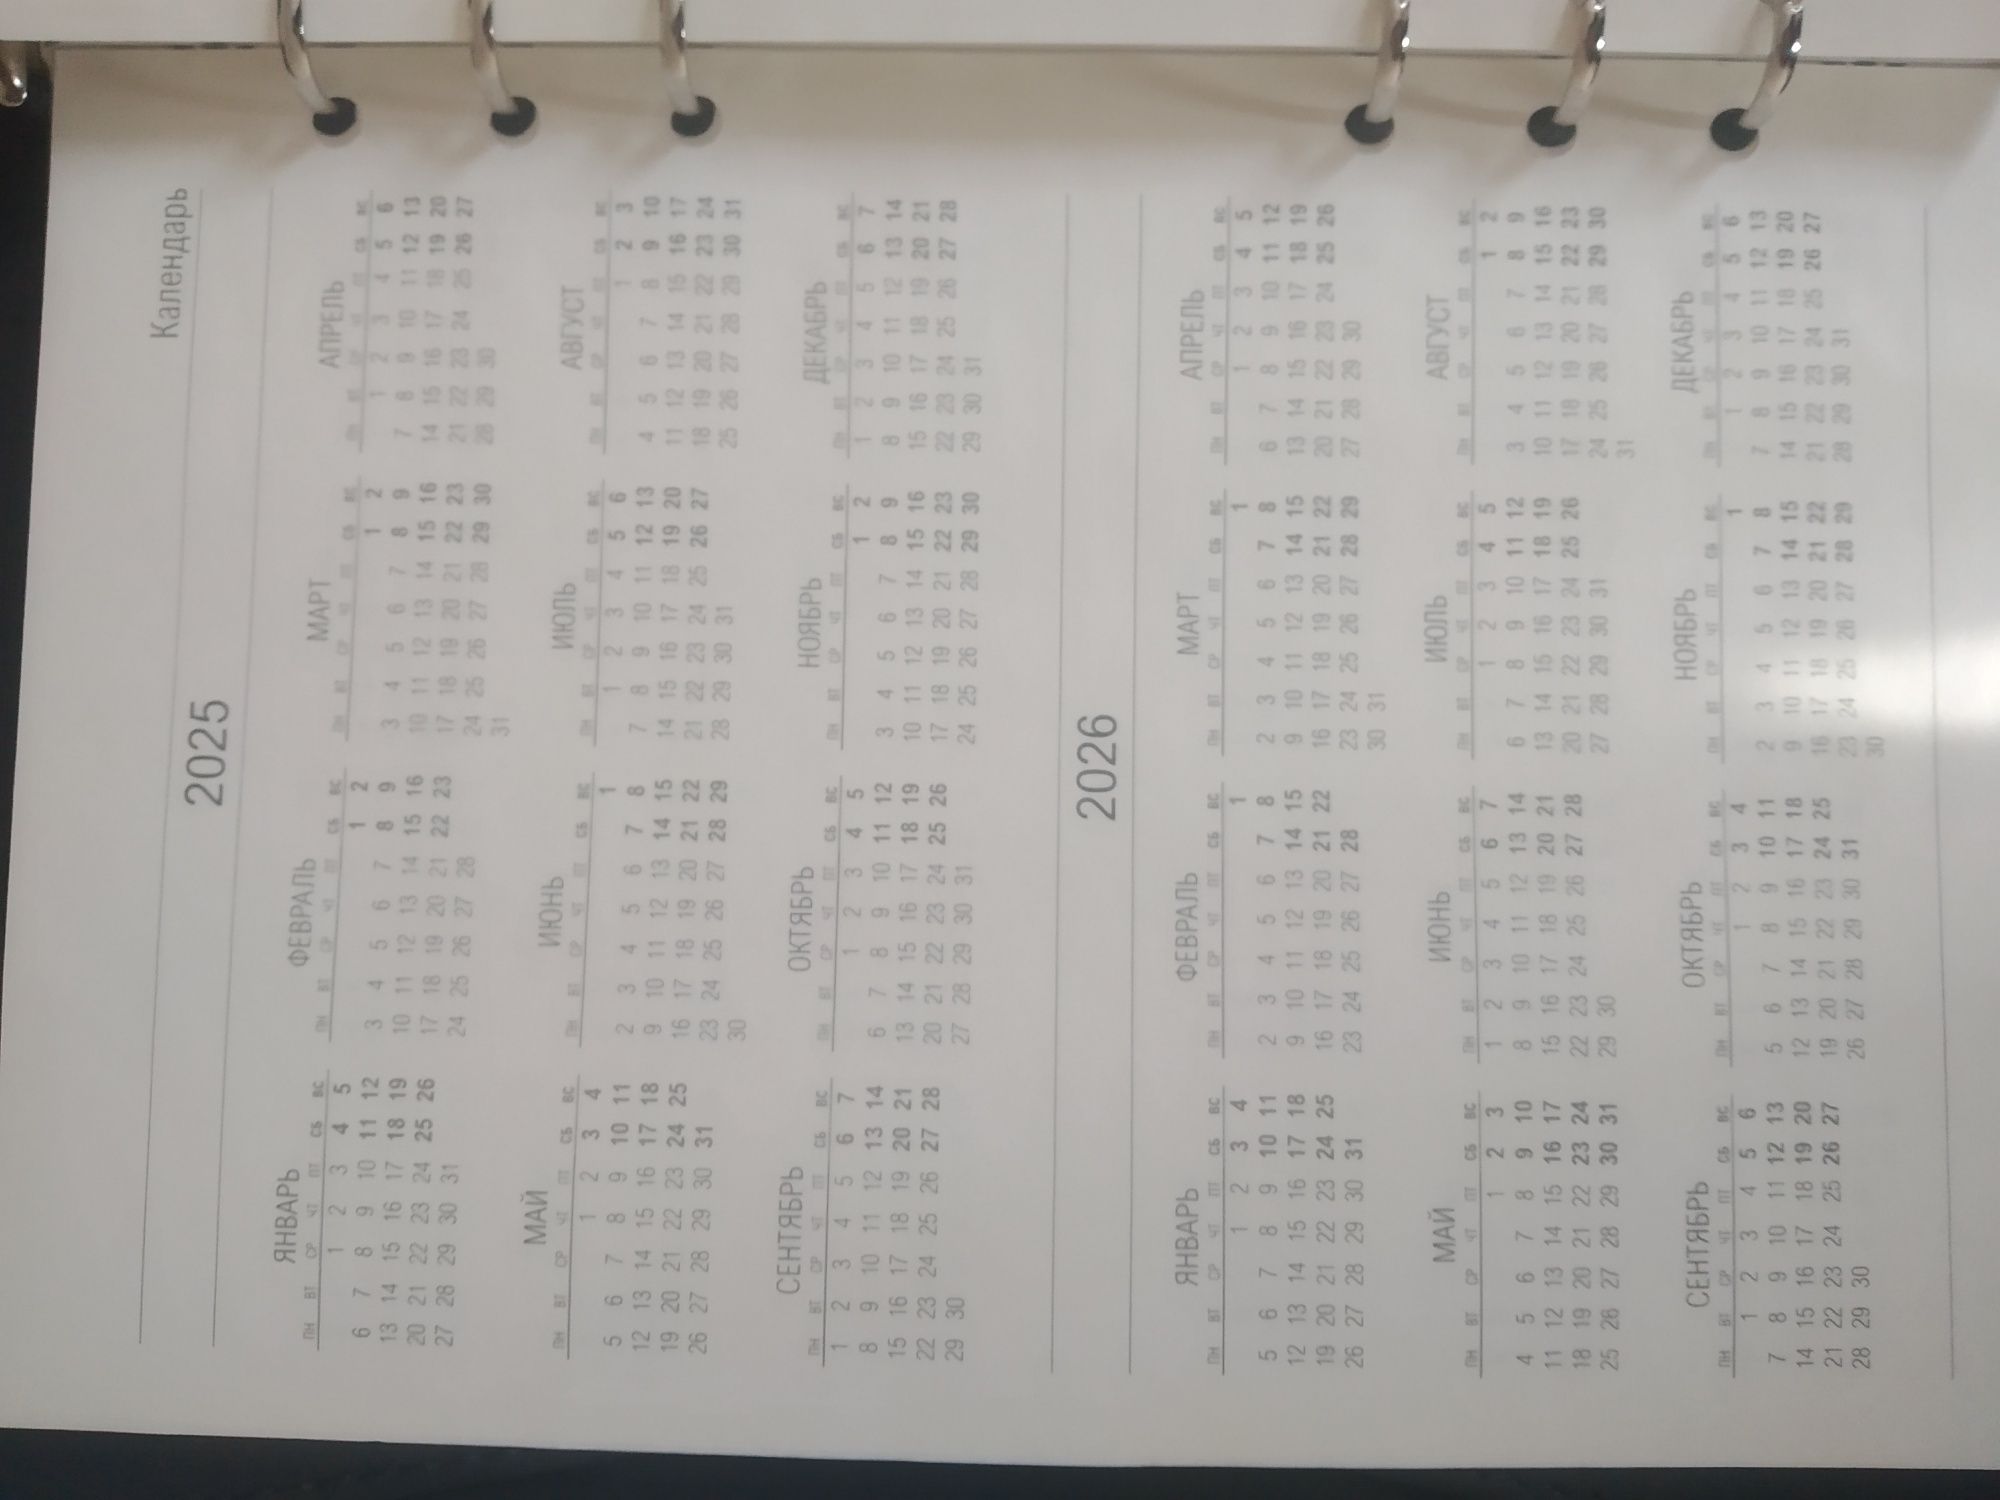 Календарь
2025
ЯНВАРЬ
ПН ВТ СР ЧТ ПТ СБ ВС
1 2 3 4 5
6 7 8 9 10 11 12
13 14 15 16 17 18 19
20 21 22 23 24 25 26
27 28 29 30 31
ФЕВРАЛЬ
ПН ВТ СР ЧТ ПТ СБ ВС
1 2
3 4 5 6 7 8 9
10 11 12 13 14 15 16
17 18 19 20 21 22 23
24 25 26 27 28
МАРТ
ПН ВТ СР ЧТ ПТ СБ ВС
1 2
3 4 5 6 7 8 9
10 11 12 13 14 15 16
17 18 19 20 21 22 23
24 25 26 27 28 29 30
31
АПРЕЛЬ
ПН ВТ СР ЧТ ПТ СБ ВС
1 2 3 4 5 6
7 8 9 10 11 12 13
14 15 16 17 18 19 20
21 22 23 24 25 26 27
28 29 30
МАЙ
ПН ВТ СР ЧТ ПТ СБ ВС
1 2 3 4
5 6 7 8 9 10 11
12 13 14 15 16 17 18
19 20 21 22 23 24 25
26 27 28 29 30 31
ИЮНЬ
ПН ВТ СР ЧТ ПТ СБ ВС
1
2 3 4 5 6 7 8
9 10 11 12 13 14 15
16 17 18 19 20 21 22
23 24 25 26 27 28 29
30
ИЮЛЬ
ПН ВТ СР ЧТ ПТ СБ ВС
1 2 3 4 5 6
7 8 9 10 11 12 13
14 15 16 17 18 19 20
21 22 23 24 25 26 27
28 29 30 31
АВГУСТ
ПН ВТ СР ЧТ ПТ СБ ВС
1 2 3
4 5 6 7 8 9 10
11 12 13 14 15 16 17
18 19 20 21 22 23 24
25 26 27 28 29 30 31
СЕНТЯБРЬ
ПН ВТ СР ЧТ ПТ СБ ВС
1 2 3 4 5 6 7
8 9 10 11 12 13 14
15 16 17 18 19 20 21
22 23 24 25 26 27 28
29 30
ОКТЯБРЬ
ПН ВТ СР ЧТ ПТ СБ ВС
1 2 3 4 5
6 7 8 9 10 11 12
13 14 15 16 17 18 19
20 21 22 23 24 25 26
27 28 29 30 31
НОЯБРЬ
ПН ВТ СР ЧТ ПТ СБ ВС
1 2
3 4 5 6 7 8 9
10 11 12 13 14 15 16
17 18 19 20 21 22 23
24 25 26 27 28 29 30
ДЕКАБРЬ
ПН ВТ СР ЧТ ПТ СБ ВС
1 2 3 4 5 6 7
8 9 10 11 12 13 14
15 16 17 18 19 20 21
22 23 24 25 26 27 28
29 30 31
2026
ЯНВАРЬ
ПН ВТ СР ЧТ ПТ СБ ВС
1 2 3 4
5 6 7 8 9 10 11
12 13 14 15 16 17 18
19 20 21 22 23 24 25
26 27 28 29 30 31
ФЕВРАЛЬ
ПН ВТ СР ЧТ ПТ СБ ВС
1
2 3 4 5 6 7 8
9 10 11 12 13 14 15
16 17 18 19 20 21 22
23 24 25 26 27 28
МАРТ
ПН ВТ СР ЧТ ПТ СБ ВС
1
2 3 4 5 6 7 8
9 10 11 12 13 14 15
16 17 18 19 20 21 22
23 24 25 26 27 28 29
30 31
АПРЕЛЬ
ПН ВТ СР ЧТ ПТ СБ ВС
1 2 3 4 5
6 7 8 9 10 11 12
13 14 15 16 17 18 19
20 21 22 23 24 25 26
27 28 29 30
МАЙ
ПН ВТ СР ЧТ ПТ СБ ВС
1 2 3
4 5 6 7 8 9 10
11 12 13 14 15 16 17
18 19 20 21 22 23 24
25 26 27 28 29 30 31
ИЮНЬ
ПН ВТ СР ЧТ ПТ СБ ВС
1 2 3 4 5 6 7
8 9 10 11 12 13 14
15 16 17 18 19 20 21
22 23 24 25 26 27 28
29 30
ИЮЛЬ
ПН ВТ СР ЧТ ПТ СБ ВС
1 2 3 4 5
6 7 8 9 10 11 12
13 14 15 16 17 18 19
20 21 22 23 24 25 26
27 28 29 30 31
АВГУСТ
ПН ВТ СР ЧТ ПТ СБ ВС
1 2
3 4 5 6 7 8 9
10 11 12 13 14 15 16
17 18 19 20 21 22 23
24 25 26 27 28 29 30
31
СЕНТЯБРЬ
ПН ВТ СР ЧТ ПТ СБ ВС
1 2 3 4 5 6
7 8 9 10 11 12 13
14 15 16 17 18 19 20
21 22 23 24 25 26 27
28 29 30
ОКТЯБРЬ
ПН ВТ СР ЧТ ПТ СБ ВС
1 2 3 4
5 6 7 8 9 10 11
12 13 14 15 16 17 18
19 20 21 22 23 24 25
26 27 28 29 30 31
НОЯБРЬ
ПН ВТ СР ЧТ ПТ СБ ВС
1
2 3 4 5 6 7 8
9 10 11 12 13 14 15
16 17 18 19 20 21 22
23 24 25 26 27 28 29
30
ДЕКАБРЬ
ПН ВТ СР ЧТ ПТ СБ ВС
1 2 3 4 5 6
7 8 9 10 11 12 13
14 15 16 17 18 19 20
21 22 23 24 25 26 27
28 29 30 31